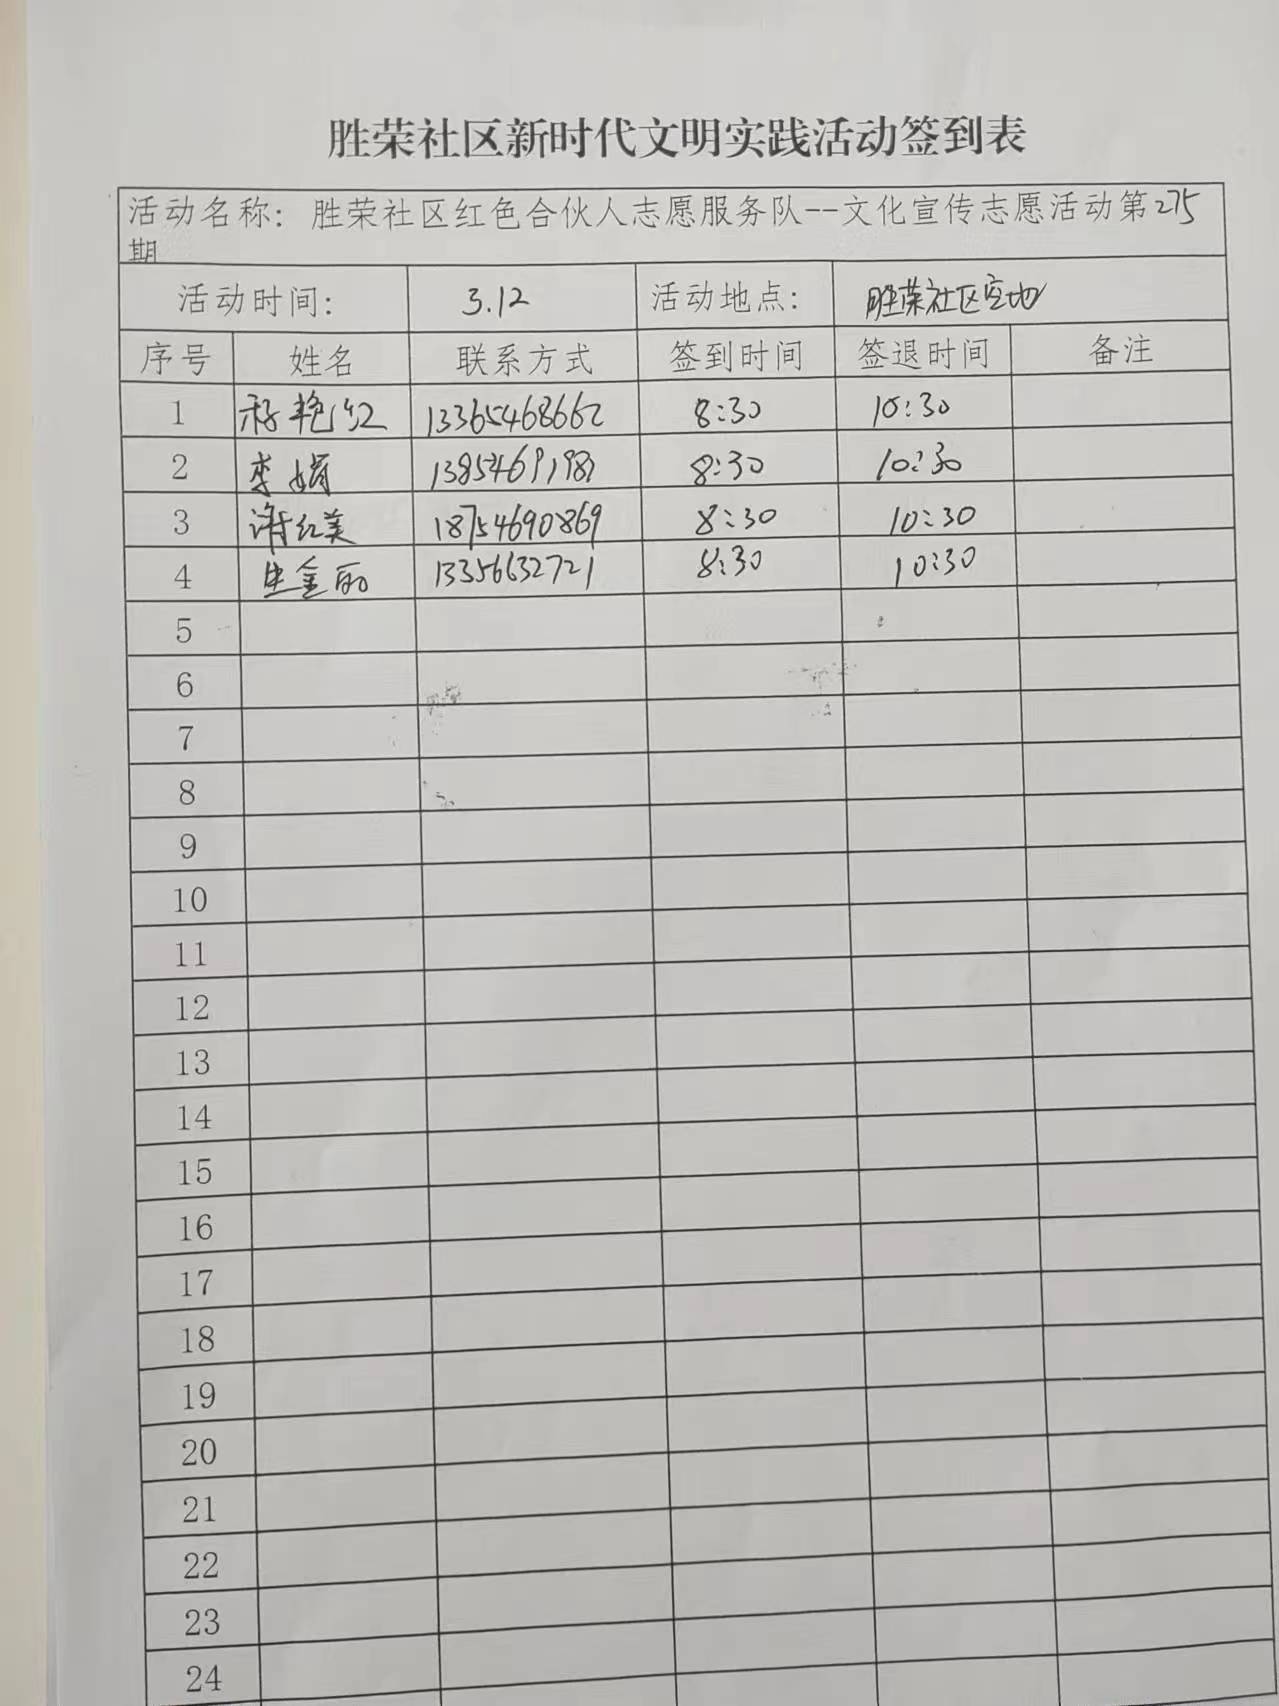 胜荣社区新时代文明实践活动签到表
活动名称：胜荣社区红色合伙人志愿服务队--文化宣传志愿活动第275
期
活动时间： 3.12 活动地点： 胜荣社区空地
序号 姓名 联系方式 签到时间 签退时间 备注
1 艳红 13365468662 8:30 10:30
2 李娟 8:30 10:30
3 谢红美 18754690869 8:30 10:30
4 生金丽 13356632721 8:30 10:30
5
6
7
8
9
10
11
12
13
14
15
16
17
18
19
20
21
22
23
24